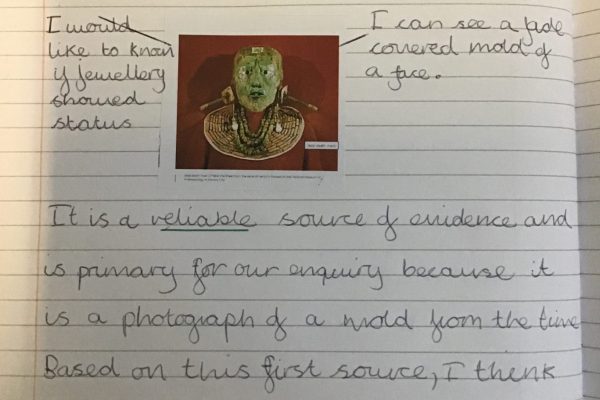 I would
like to know
if jewellery
showed
status
I can see a jade
covered mold of
a face.
It is a reliable source of evidence and
is primary for our enquiry because it
is a photograph of a mold from the time
Based on this first source, I think